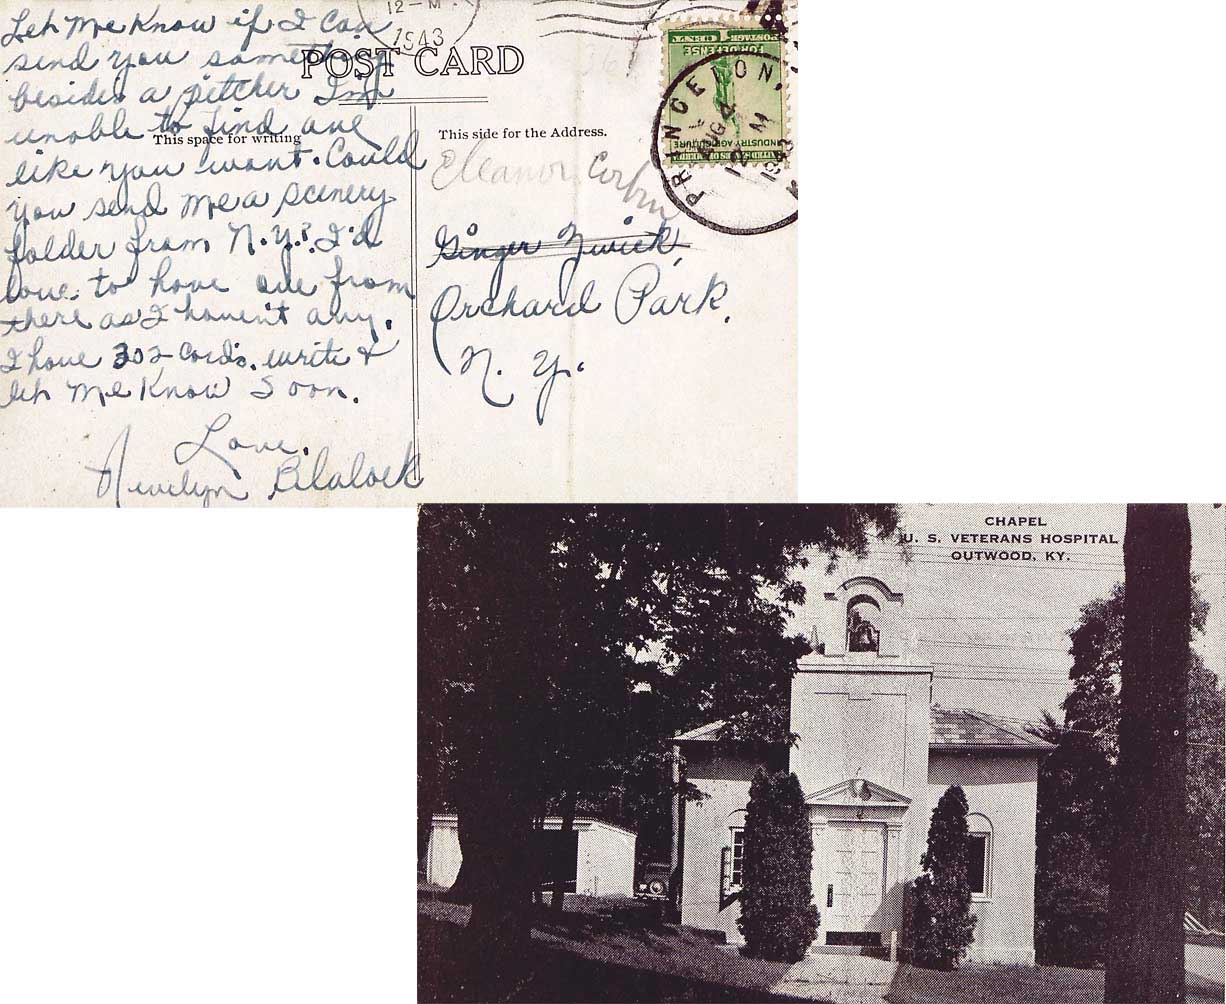 Let me Know if I Can
send you something
besides a pitcher I'm
unable to find one
like you want. Could
you send me a scenery
folder from N.Y.? I'd
love to have one from
there as I haven't any.
I have 302 cards. write &
let me Know Soon.
Love,
Blalock
12-M.
1943
POST CARD
This space for writing
This side for the Address.
Eleanor Corbin
Ginger Zwick,
Orchard Park,
N. Y.
1 CENT 1
POSTAGE
FOR DEFENSE
INDUSTRY AGRICULTURE
UNITED STATES OF AMERICA
PRINCETON,
AUG 4
12 M
1943
CHAPEL
U. S. VETERANS HOSPITAL
OUTWOOD, KY.